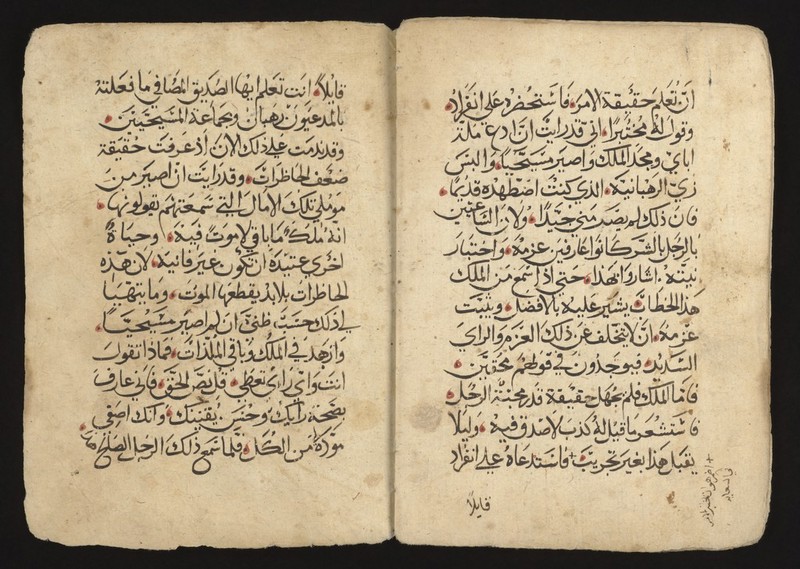 ان تعلم حقيقة الامر فاستحضره على انفراد
وقول له مختبرا اني قد رايت ان ادع ملة
اباي ومجد الملك واصير مسيحيا والبس
زي الرهبانية الذي كنت اضطهده قديما
فان ذلك لم يصدر مني جيدا ولان الساعيين
بالرجل بالشر كانوا عارفين عزمه واختبار
نيته اشاروا بهذا حتى اذا سمع من الملك
هذا الخطاب يشير عليه بالافضل ويثبت
عزمه ان لا يتخلف عن ذلك العزم والراي
السديد فيوجدون في قولهم محقين
فاما الملك فلم يجهل حقيقة قدر محبة الرجل
فاستشعر ما قيل له كذب لا صدق فيه وليلا
يقبل هذا بغير تجريب فاستدعاه على انفراد
قايلا
قايلا انت تعلم ايها الصديق المصافي ما فعلته
بالمدعيون رهبان وبجماعة المسيحيين
وقد ندمت على ذلك الان اذ عرفت حقيقة
ضعف الحاظرات وقد رايت ان اصير من
مومّلي تلك الامال التي سمعتهم يقولونها
انه ملك ما باقي لا موت فيه وحياة
اخرى عتيدة ان تكون غير فانية لان هذه
الحاظرات بلا بد يقطعها الموت وما يتهيا
لي ذلك حسب ظني ان لم اصير مسيحيا
وازهد في الملك وباقي الملذات فماذا تقول
انت واي راي تعطي قل بنص الحق فاني عارف
بصحة رايك وحسن يقينك وانك اصفى
مودة من الكل فلما سمع ذلك الرجل الصالح